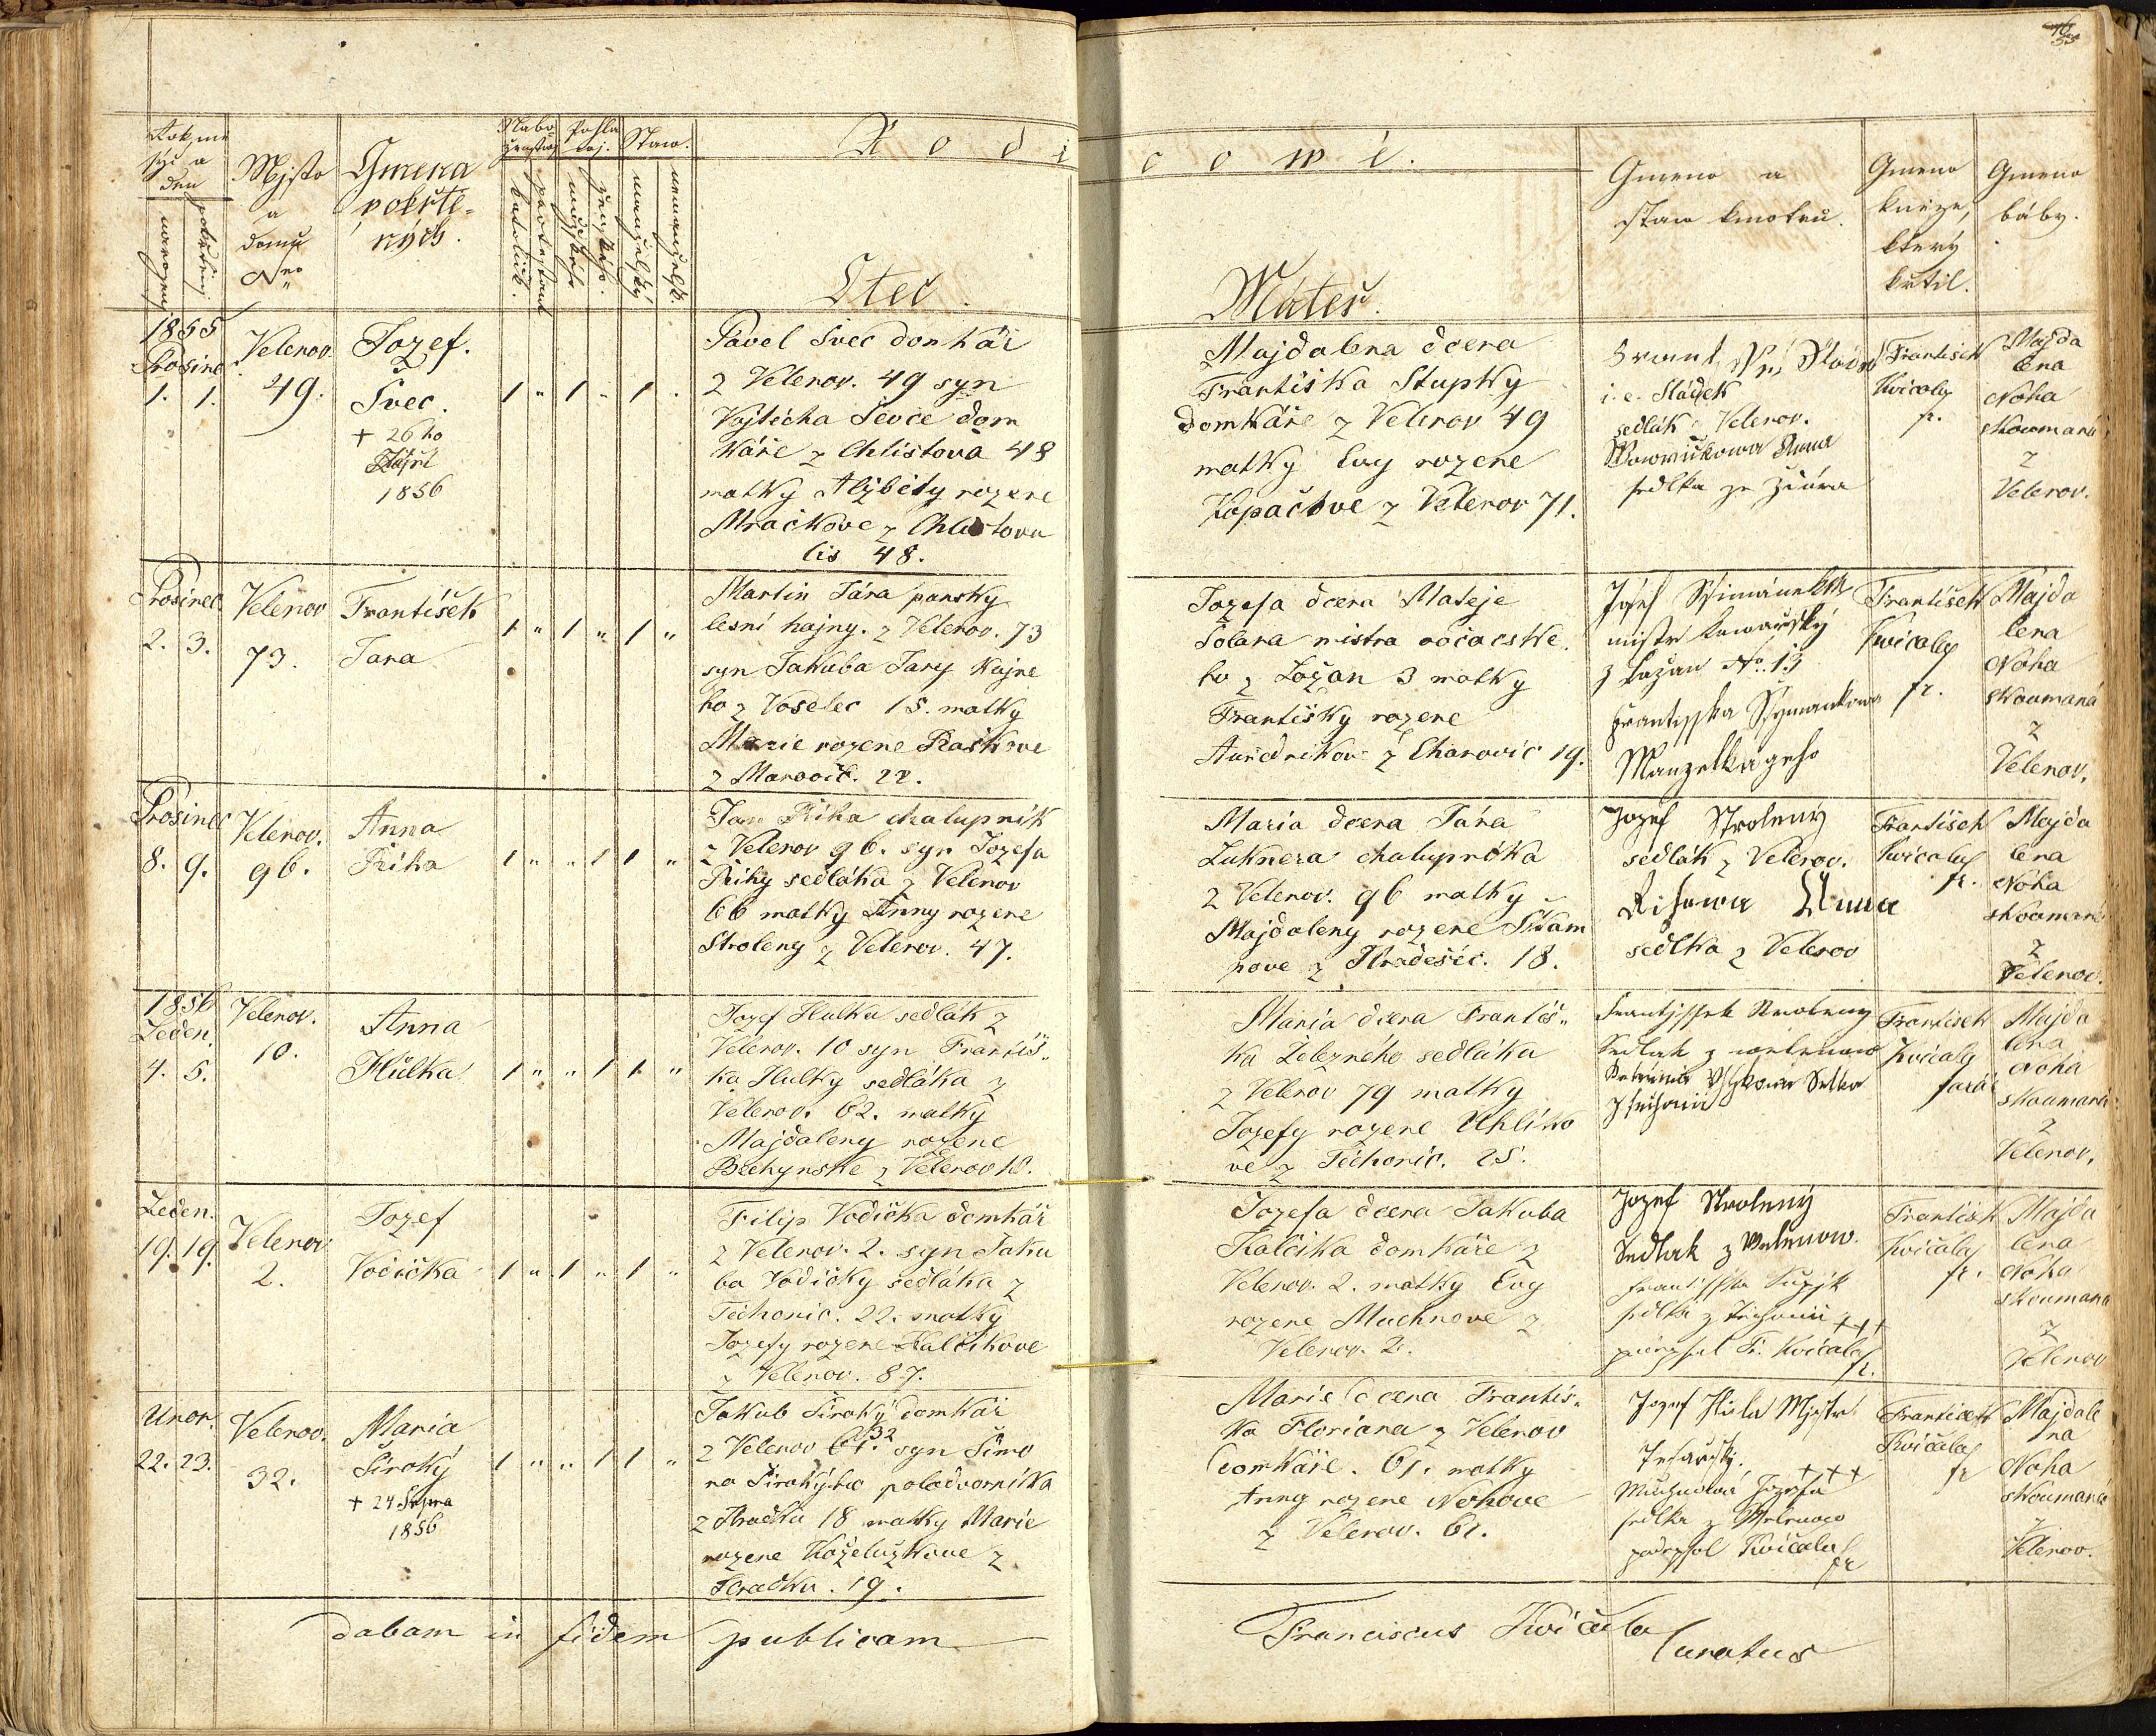 Rok, mě
syc a
den
narozený
pokřtěný
Mjsto
a
domu
Nro
Gmena
pokřtě-
ných.
Nabo-
ženstwj
katolick.
protestant
Pohla
wj.
mužské
ženské
Staw.
manželský
nemanželsk.
Rodi
Otec.
cowé.
Máteř.
Gmeno a
staw kmotrů.
Gmeno
kněze,
který
křtil.
Gmeno
báby.
1855
Prosinec
1. 1.
Velenov.
49.
Jozef.
Švec.
+ 26 ho
Zářní
1856
1 " 1 " 1 "
Pavel Švec domkář
z Velenov. 49 syn
Vojtěcha Ševce dom
káře z Chlistova 48
matky Alžběty rozene
Mračkove z Chlistova
čis 48.
Majdalena dcera
Františka Stupky
domkáře z Velenov 49
matky Evy rozene
Kopačkve z Velenov 71.
i. e. Sládek
sedlák Velenov.
Anna
sedlka ze
František
Kwičala
fr.
Majda
lena
Noha
skoumaná
z
Velenov.
Prosinec
2. 3.
Velenov
73.
František
Jara
1 " 1 " 1 "
Martin Jára pansky
lesní hajny. z Velenov. 73
syn Jakuba Jary hajne
ho z Voselec 15. matky
Marie rozene Raškove
z Marovič. 22.
Jozefa dcera Mateje
Šolara mistra
ho z Lažan 3 matky
Františky rozene
Auředníkov z Charovic 19.
Josef Ssimánek
mistr kowařský
z Lažan No. 13
Frantisska Ssymankowa
Manzelka geho
František
Kwičala
fr.
Majda
lena
Noha
skoumaná
z
Velenov.
Prosinec
8. 9.
Velenov.
96.
Anna
Říha
1 " " 1 1 "
Jan Říha chalupník
z Velenov 96. syn Jozefa
Říhy sedláka z Velenov
66 matky Anny rozene
Stroleny z Velenov. 47.
Maria dcera Jána
Luknera chalupníka
z Velenov. 96 matky
Majdaleny rozene Škam
pove z Hradešic. 18.
Jozef Stroleny
sedlák z Velenov.
Řihowa Anna
sedlka z Velenov
František
Kwičala
fr.
Majda
lena
Noha
skoumaná
z
Velenov.
1856
Leden.
4. 5.
Velenov.
10.
Anna
Hulka
1 " " 1 1 "
Jozef Hulka sedlák z
Velenov. 10 syn Františ"
ka Hulky sedláka z
Velenov. 62. matky
Majdaleny rozene
Bechynske z Velenov 10.
Maria dcera Františ"
ka Železného sedláka
z Velenov 79 matky
Jozefy rozene Uhlíko
ve z Těchonic. 25.
Frantjssek Stroleny
Sedlak z welenow
František
Kvičala
farář
Majda
lena
Noha
skoumaná
z
Velenov.
Leden.
19. 19.
Velenov
2.
Jozef
Vodička
1 " 1 " 1 "
Filip Vodička domkář
z Velenov. 2. syn Jaku
ba Vodičky sedláka z
Těchonic. 22. matky
Jozefy rozene Kalčikove
z Velenov. 87.
Jozefa dcera Jakuba
Kalčika domkáře z
Velenov. 2. matky Evy
rozene Muchnove z
Velenov. 2.
Jozef Stroleny
Sedlak z Welenow.
Frantisska
sedlka z Tiechonic +++
podepsal F. Kvičala
fr.
František
Kvičala
fr.
Majda
lena
Noha
skoumaná
z
Velenov
Unor.
22. 23.
Velenov.
32.
Maria
Široký
+ 24 Srpna
1856
1 " " 1 1 "
Jakub Široký domkář
z Velenov 61. 32 syn Šimo
na Širokýho polodvorníka
z Hradku 18 matky Marie
rozene Koželužkove z
Hradku. 19.
Marie dcera Františ"
ka Floriana z Velenov
domkáře. 61. matky
Anny rozene Nohove
z Velenov. 61.
Jozef Mistr
Tesařský.
Muchnowá Jozefa +++
sedlka z Welenow
podepsal Kvičala
fr
František
Kvičala
fr
Majdale
na
Noha
skoumaná
z
Velenov.
dabam in fidem publicam
Franciscus Kvičala
Curatus